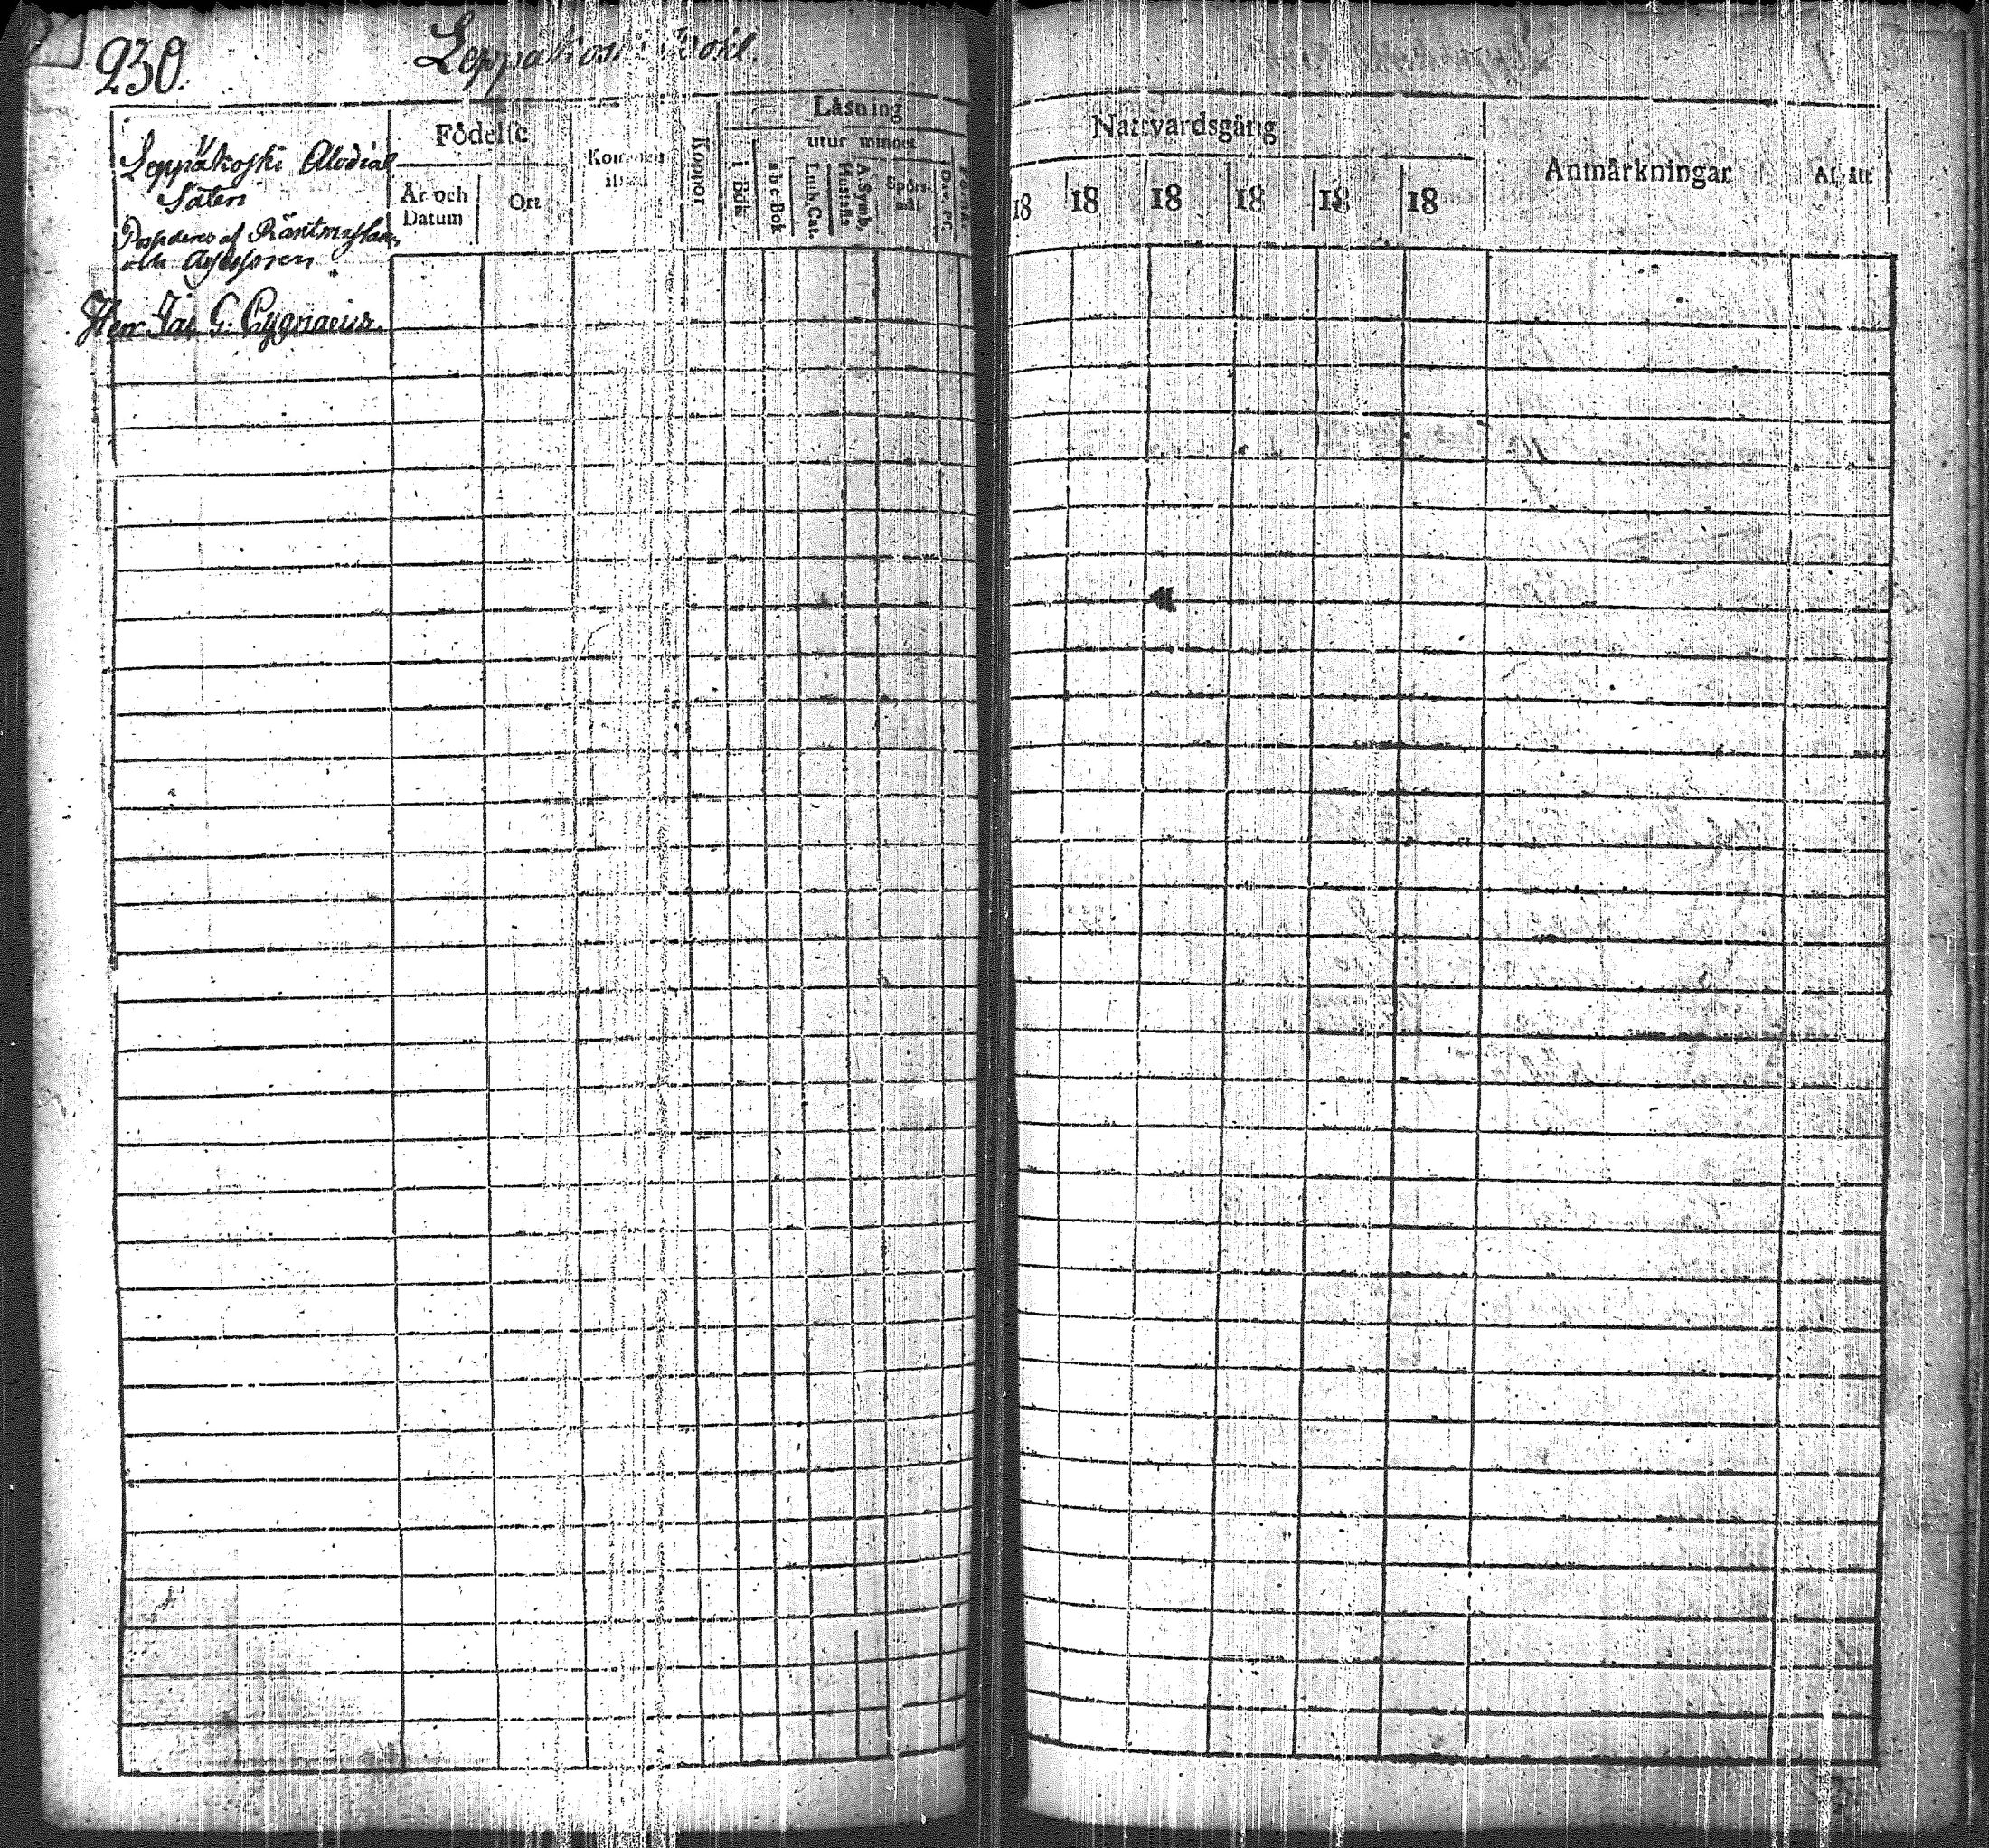 230.
Leppäkoski
Leppäkoski Alodial
Säteri
Possideres af Räntmästaren
och Assessoren
Herr Jac. G. Cygnaeus.
Födelse
År och
Datum
Ort
Koppor
Läsning
utur minnet
i Bok
a b c Bok
Luth. Cat.
Hustafla
A. Symb.
Spörs-
mål
Dav. Ps.
Nattvardsgång
18 18 18 18 18 18
Anmärkningar